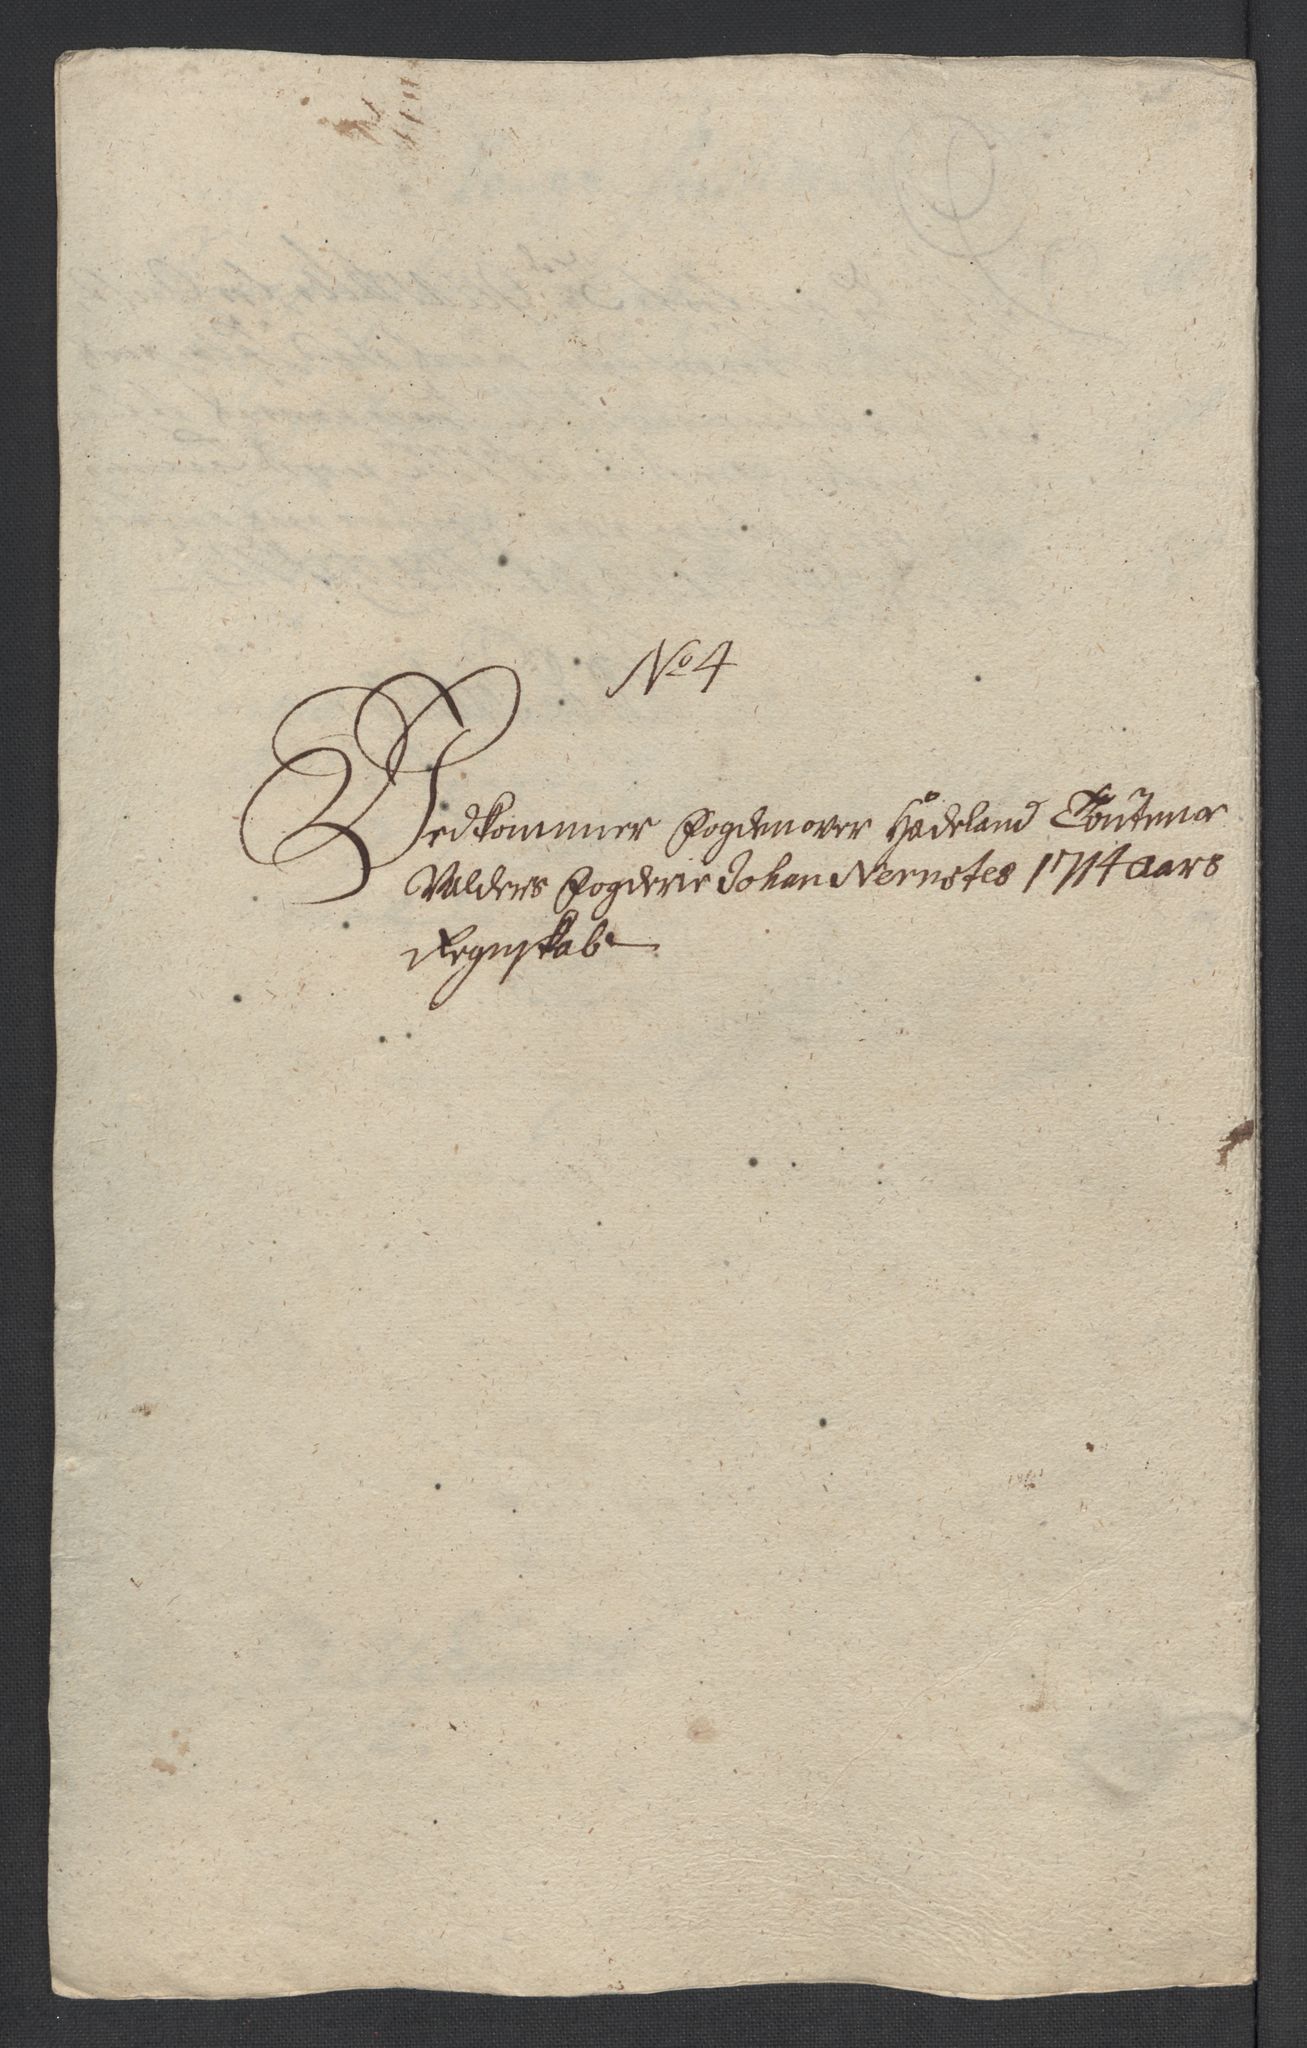 No 4
Vedkommer Fogden over Hadeland Touten oc
Valders Fogderie Johan Nernstes 1714 aars
Regnskab